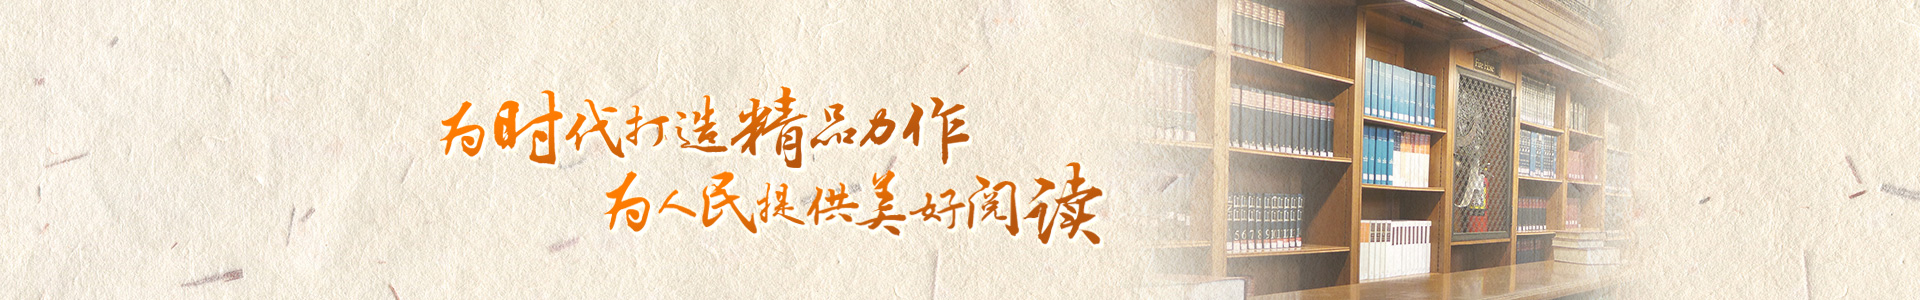 为时代打造精品力作
为人民提供美好阅读
Fire Hose